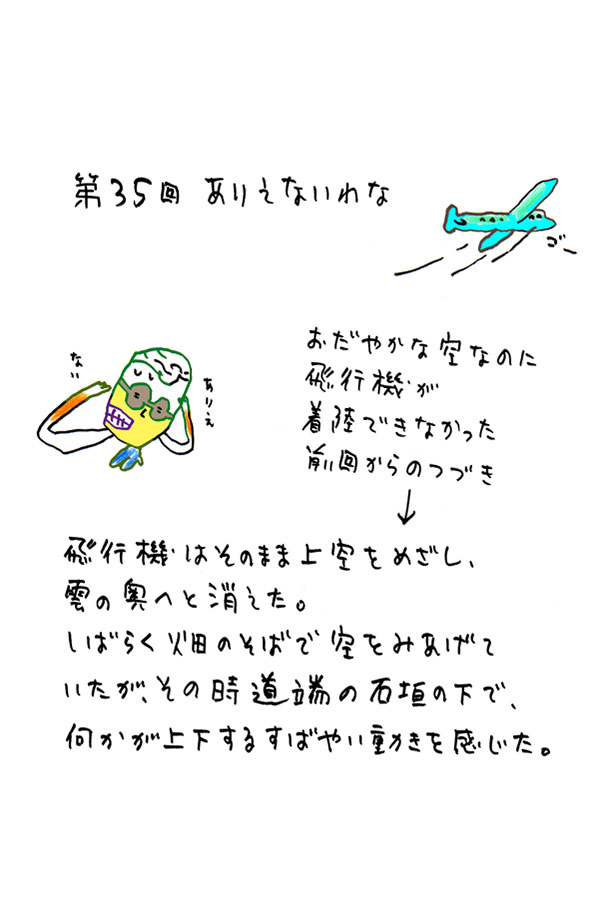 第35回 ありえないわな
ゴー
おだやかな空なのに
飛行機が
着陸できなかった
前回からのつづき
ありえ
ない
飛行機はそのまま上空をめざし、
雲の奥へと消えた。
しばらく畑のそばで空をみあげて
いたが、その時道端の石垣の下で、
何かが上下するすばやい動きを感じた。